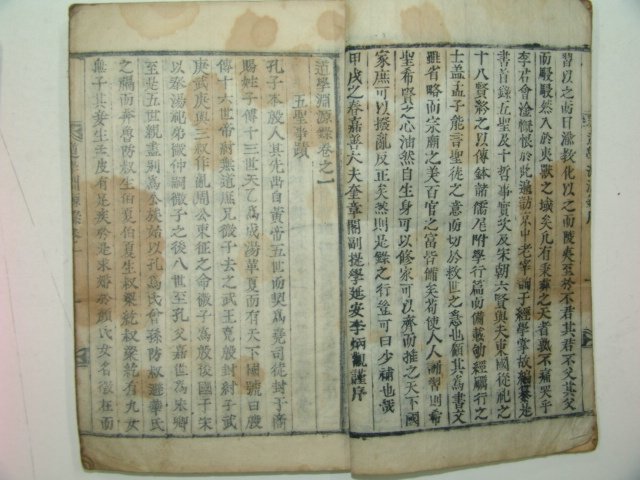 習以之而日滋敎化以之而陵夷至於不君其君不父其父
而駸駸然入於夷獸之域矣凡有秉彛之天者孰不痛哭乎
李君會淦慨恨於此適訪泮中老宰國子經學掌故編纂是
書首錄五聖及十哲事實次及宋朝六賢與夫東國從祀之
十八賢終之以傳鉢諸儒尾附學行篇而備載勤經礪行之
士盖孟子能言聖徒之意而切於救世之意也願其爲書文
雖省略而宗廟之美百官之富皆備矣苟使人人誦習則希
聖希賢之心油然自生身可以修家可以齊而推之天下國
家庶可以撥亂反正矣然則是錄之行豈可曰少補也哉
甲戌之春嘉善大夫奎章閣副提學延安李炳觀謹序
道學淵源錄卷之一
五聖事蹟
孔子本殷人其先出自黃帝五世而契爲堯司徒封于商
賜姓子傳十三世天乙爲成湯革夏而有天下國號曰殷
傳十六世帝紂無道庶兄微子去之武王克殷封紂子武
庚武庚與三叔作亂周公東征之命微子爲殷後國于宋
以奉湯祀弟微仲嗣微子之後八世至孔父嘉世爲宋卿
至是五世親盡別爲公族始以孔爲氏曾孫防叔避華氏
之禍而奔魯防叔生伯夏伯夏生叔梁紇叔梁紇有九女
無子其妾生孟皮有足疾於是求婚於顔氏女名徵在而